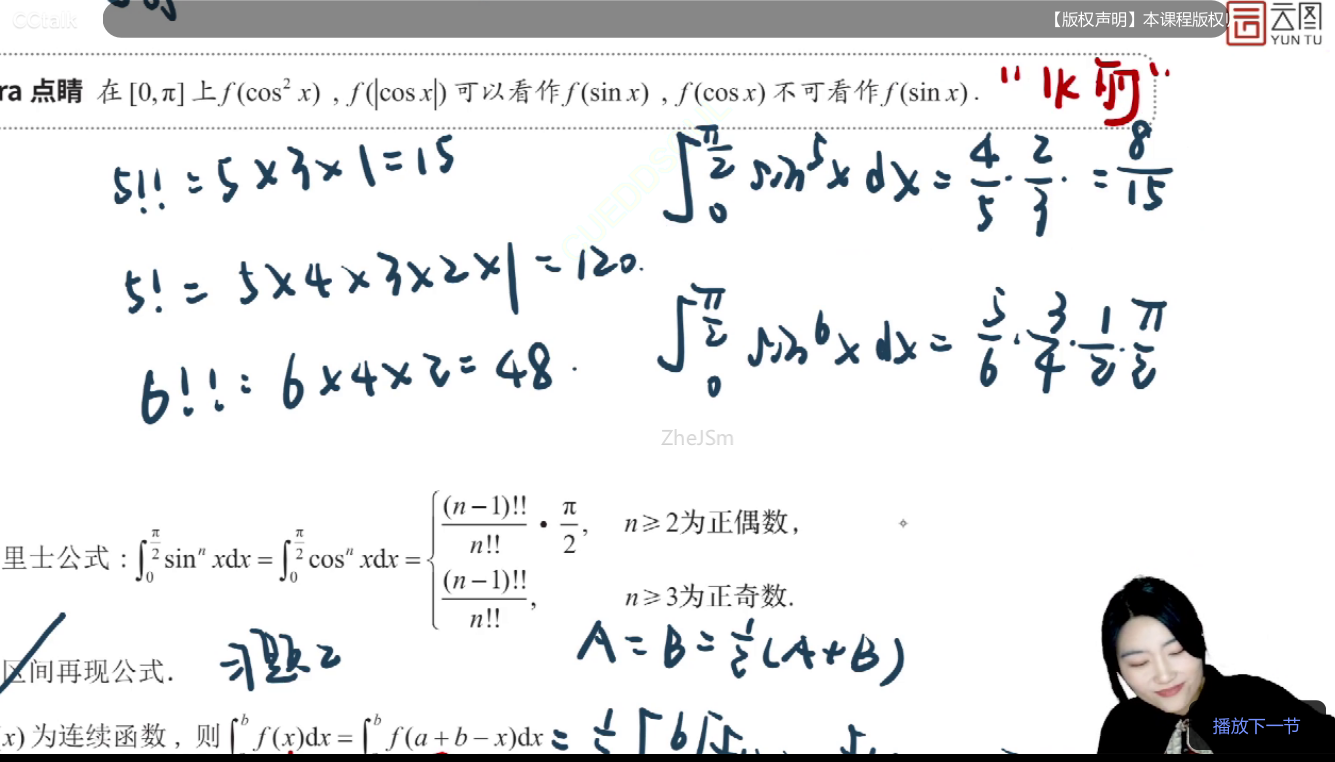 CCtalk
【版权声明】本课程版权!
云图
YUN TU
ra 点睛 在 [0,π] 上 f(cos² x) , f(|cos x|) 可以看作 f(sin x) , f(cos x) 不可看作 f(sin x) .
5!! = 5×3×1=15
∫₀^(π/2) sin⁵x dx = 4/5 · 2/3 · = 8/15
5! = 5×4×3×2×1 = 120.
6!! = 6×4×2 = 48 .
∫₀^(π/2) sin⁶x dx = 5/6 · 3/4 · 1/2 · π/2
ZheJSm
里士公式 : ∫₀^(π/2) sinⁿ xdx = ∫₀^(π/2) cosⁿ xdx = { (n−1)!!/n!! • π/2, n≥2为正偶数,
(n−1)!!/n!!, n≥3为正奇数.
A = B = 1/2 (A+B)
区间再现公式. 习题2
(x) 为连续函数 , 则 ∫ₐᵇ f(x)dx = ∫ₐᵇ f(a+b−x)dx = 1/2 ∫
播放下一节